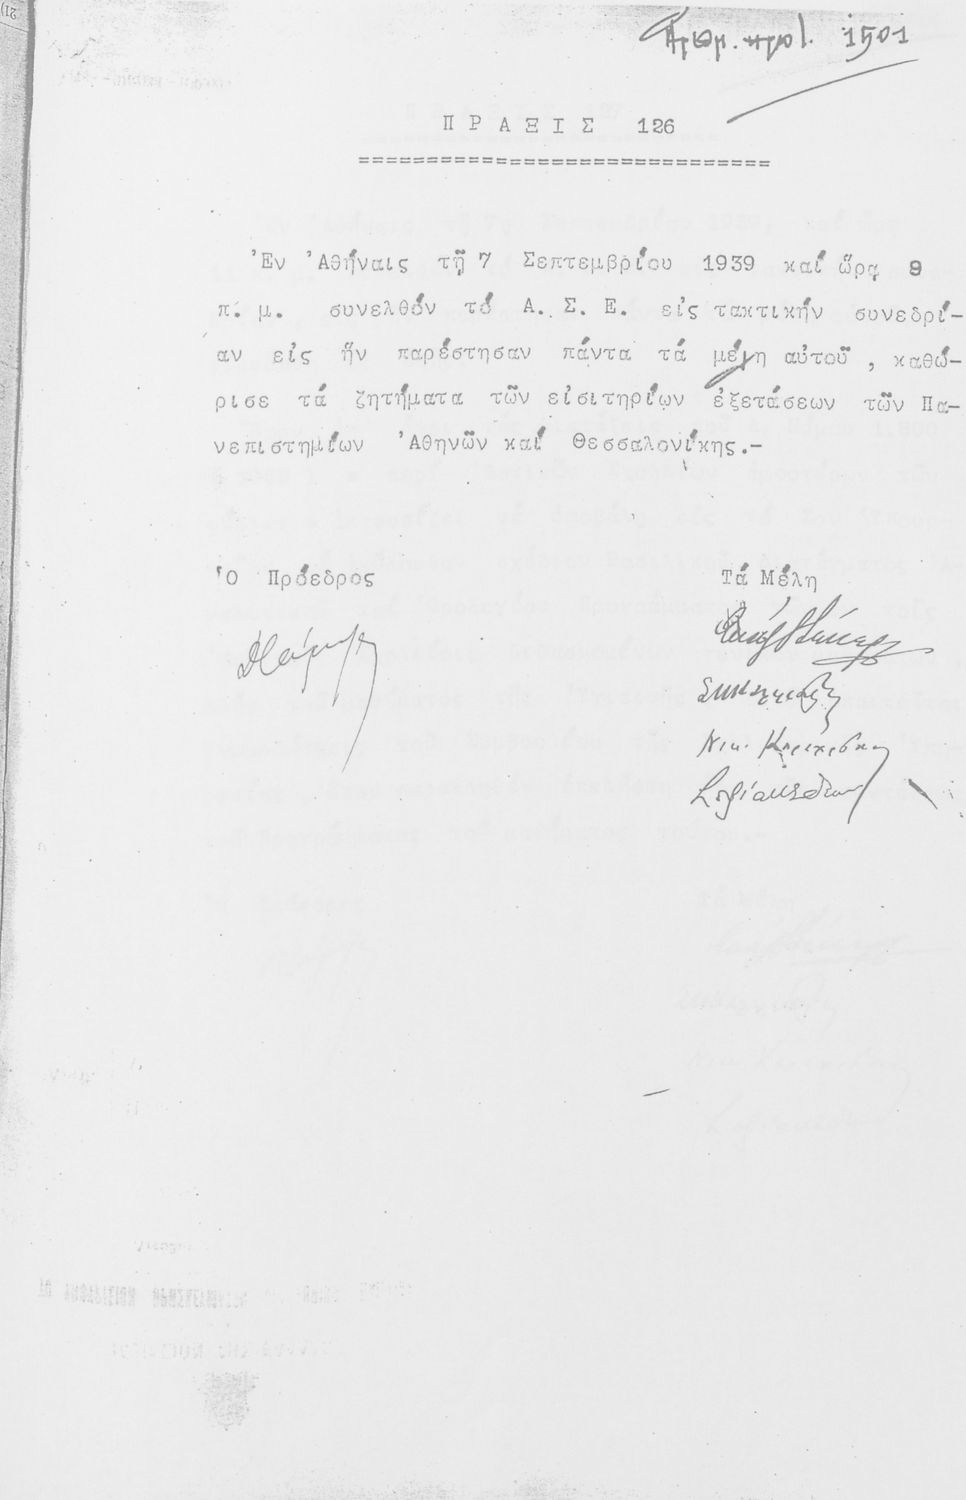 Ἀριθμ. πρωτ. 1501
Π Ρ Α Ξ Ι Σ 126
==============================
Ἐν Ἀθήναις τῇ 7 Σεπτεμβρίου 1939 καί ὥρᾳ 9
π. μ. συνελθόν τό Α. Σ. Ε. εἰς τακτικήν συνεδρί-
αν εἰς ἥν παρέστησαν πάντα τά μέλη αὐτοῦ, καθώ-
ρισε τά ζητήματα τῶν εἰσιτηρίων ἐξετάσεων τῶν Πα-
νεπιστημίων Ἀθηνῶν καί Θεσσαλονίκης.-
Ὁ Πρόεδρος
Τά Μέλη
Νικ.